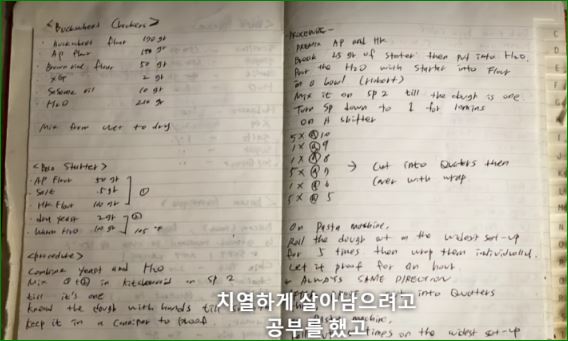 <Buckwheat Crackers>
· Buckwheat Flour 150 gr
· AP Flour 150 gr
· Brown rice flour 50 gr
· XG 2 gr
· Sesame oil 10 gr
· H2O 210 gr
Mix from wet to dry
Starter>
· AP Flour 50 gr
· Salt .5 gr
①
· HR Flour 100 gr
· dry yeast 2 gr
②
· Warm H2O 105 °F
<procedure>
Combine yeast and H2O
Mix ① + ② in kitchenaid on SP 2
till it's one
Knead the dough with hands till
keep it in a to proof.
PROCEDURE -
AP and HR.
Break 25 gr of starter then put into H2O.
Put the H2O with starter into Flour
in a bowl (Hobart)
Mix it on SP 2 till the dough is one.
Turn SP down to 1 for 10mins
On A shifter
5 × @ 10
1 × @ 9
1 × @ 8
5 ×
1 × @ 6
5 × @ 5
→ Cut into Quaters then
cover with wrap
On Pasta machine.
Roll the dough out on the widest set-up
for 5 times then wrap them individually.
Let it proof for an hour
* ALWAYS SAME DIRECTION
into Quaters
Pasta machine.
times on the widest set-up
C
D
E
F
치열하게 살아남으려고
공부를 했고